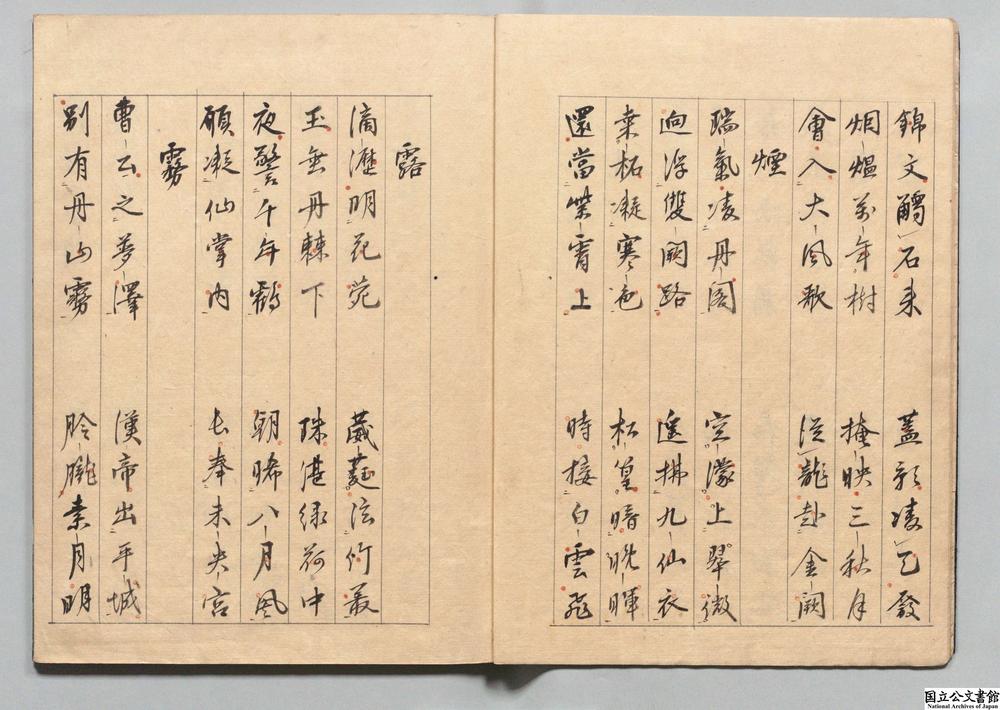 錦文觸石来　蓋影凌天發
烟熅万年樹　掩映三秋月
會入大風歌　從龍赴金闕
煙
瑞氣凌丹閣　空濛上翠微
迥浮雙闕路　遥拂九仙衣
桒柘凝寒色　松篁暗晩暉
還當紫霄上　時接白雲飛
露
滴瀝明花苑　葳蕤泫竹叢
玉垂丹棘下　珠湛緑荷中
夜警千年鶴　朝晞八月風
願凝仙掌内　長奉未央宮
霧
曹公之夢澤　漢帝出平城
別有丹山霧　朎朧素月明
国立公文書館
National Archives of Japan